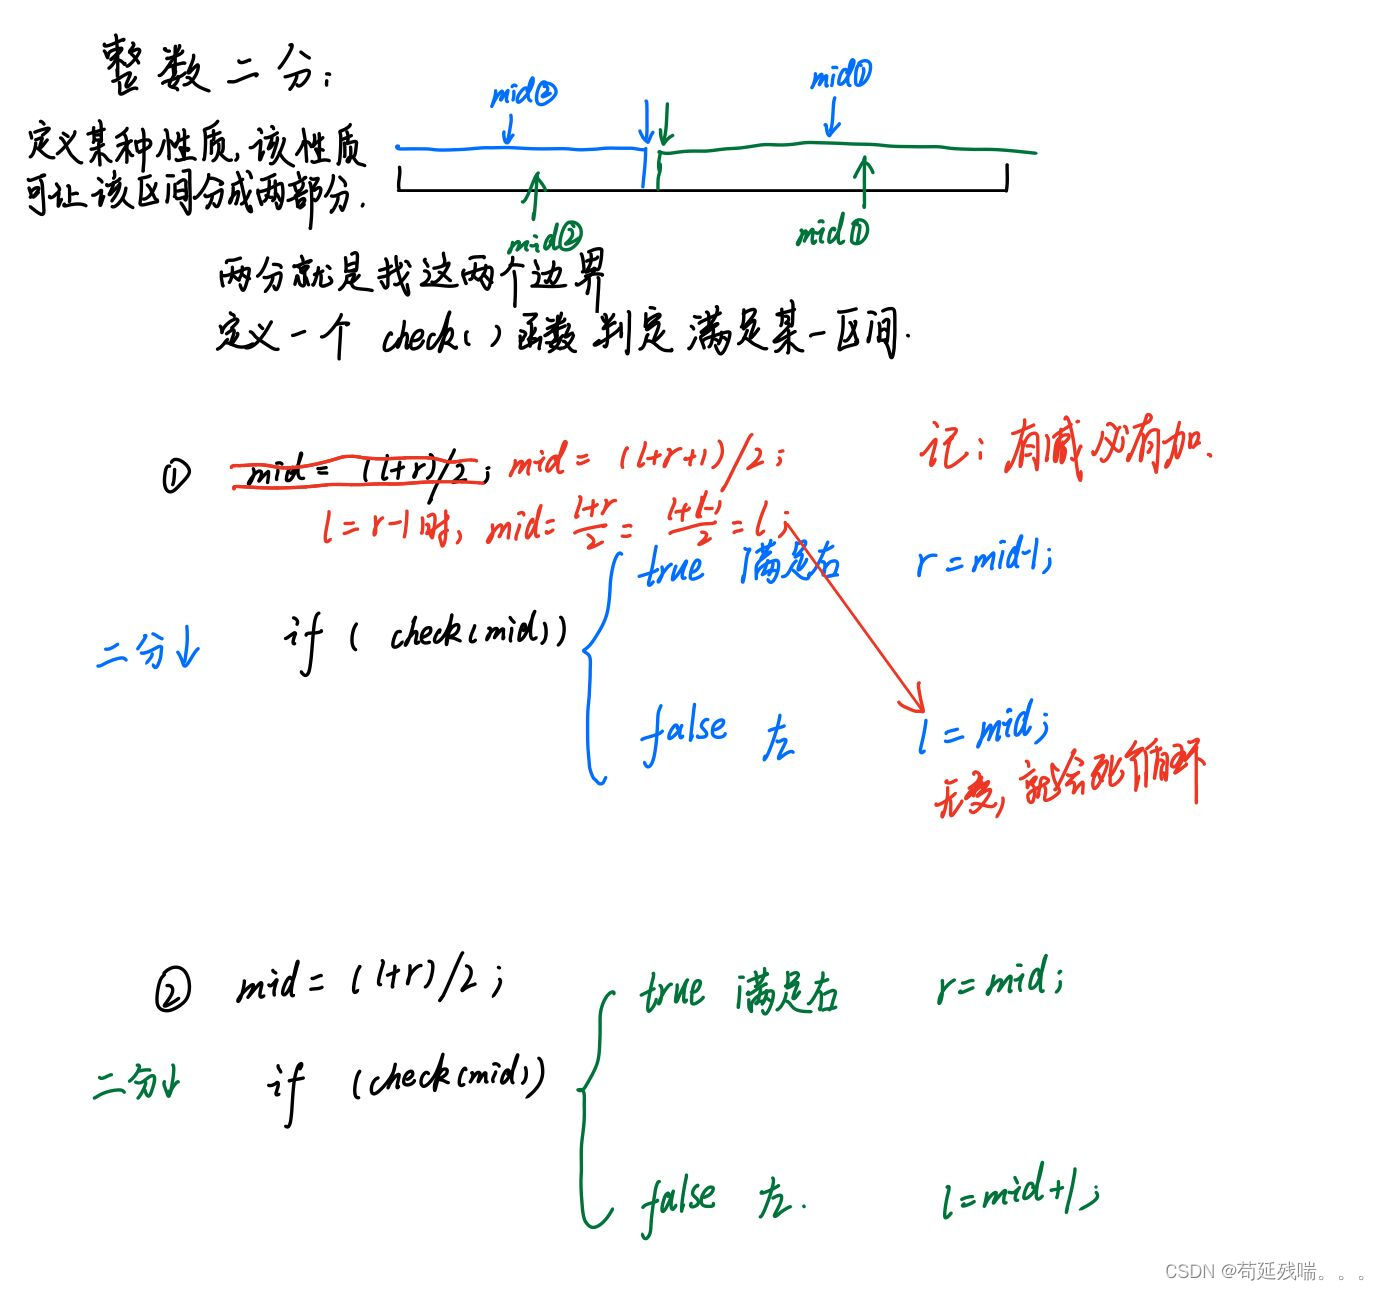 整数二分:
mid② mid①
定义某种性质,该性质
可让该区间分成两部分.
mid② mid①
两分就是找这两个边界
定义一个 check() 函数 判定 满足某一区间.
① mid = (l+r)/2; mid = (l+r+1)/2; 记: 有减必有加.
l = r-1时, mid = l+r/2 = l+l-1/2 = l;
true 满足右 r = mid-1;
二分↓ if ( check(mid))
false 左 l = mid;
无变, 就会死循环
② mid = (l+r)/2; true 满足右 r = mid;
二分↓ if (check(mid))
false 左. l = mid+1;
CSDN @苟延残喘。。。